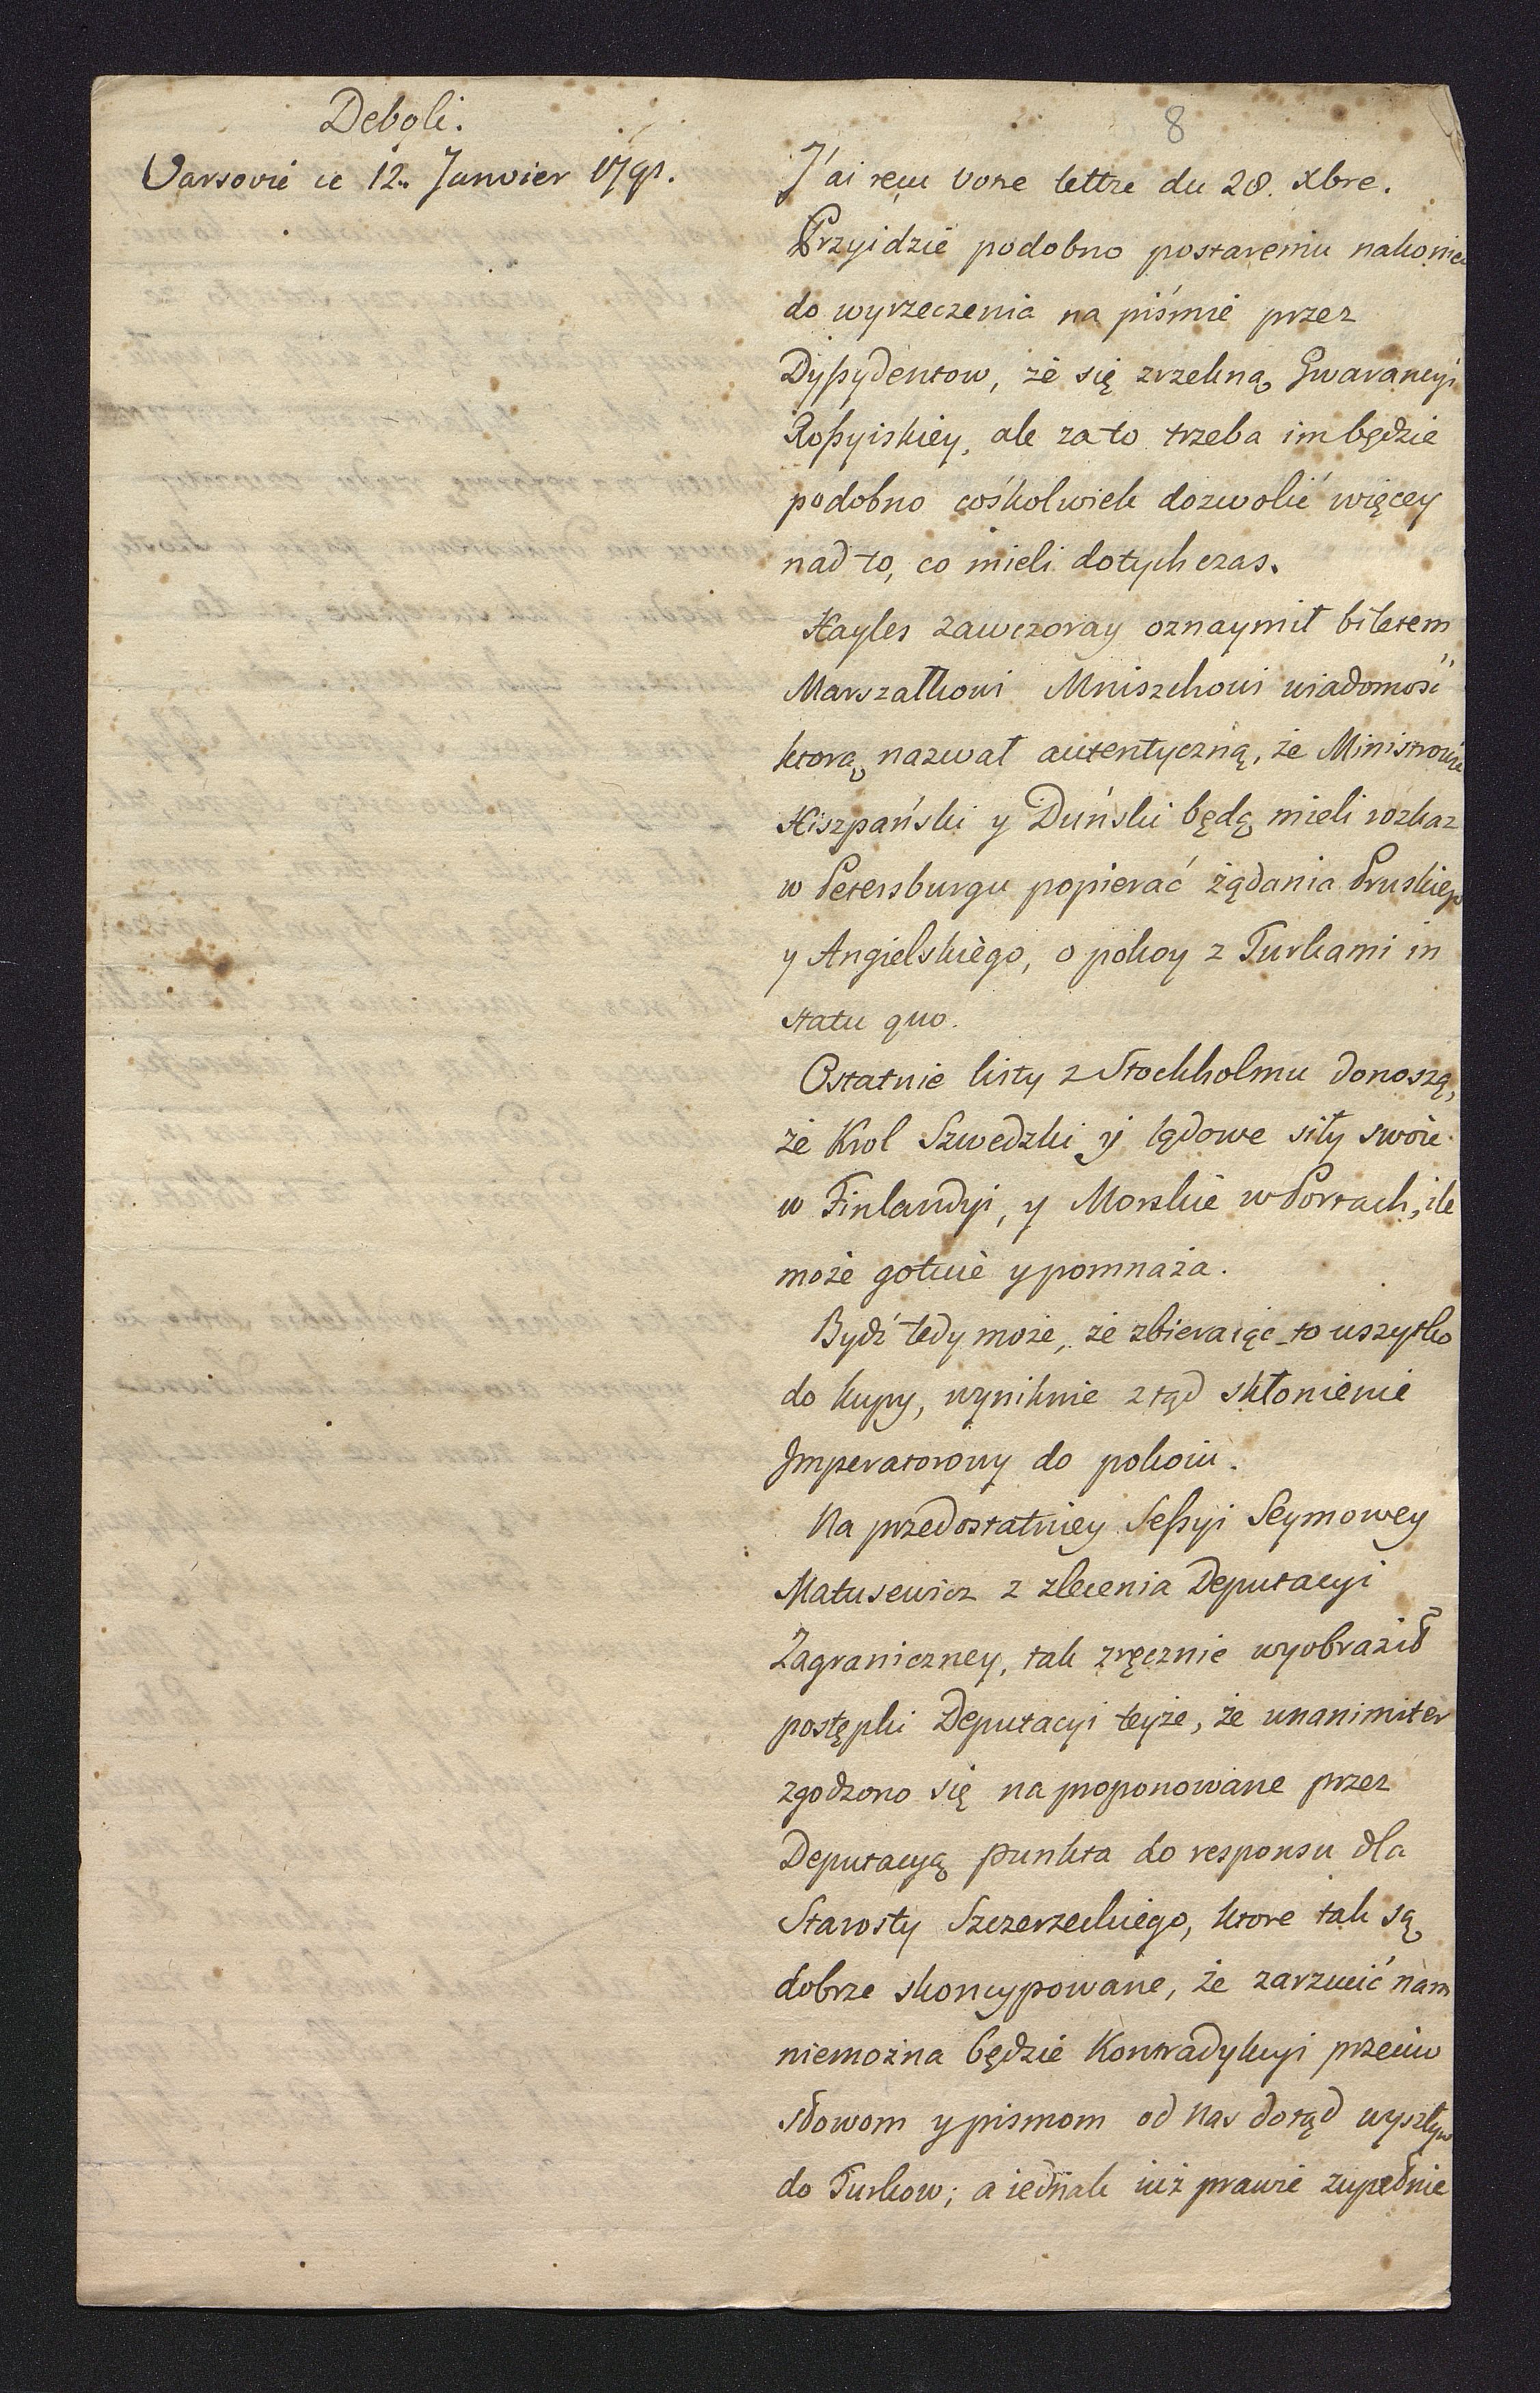 Deboli.
8
Varsovie ce 12. Janvier 1791.
J'ai reçu votre lettre du 28. Xbre.
Przyidzie podobno postaremu nakoniec
do wyrzeczenia na piśmie przez
Dyssydentow, że się zrzekną Gwarancyi
Rossyiskiey, ale za to trzeba im będzie
podobno cośkolwiek dozwolić więcey
nad to, co mieli dotychczas.
Hayles zawczoray oznaymił biletem
Marszałkowi Mniszchowi wiadomość
ktorą nazwał autentyczną, że Ministrowie
Hiszpański y Duński będą mieli rozkaz
w Petersburgu popierać żądania Pruskiego
y Angielskiego, o pokoy z Turkami in
statu quo.
Ostatnie listy z Stockholmu donoszą,
że Krol Szwedzki y lądowe siły swoie
w Finlandyi, y Morskie w Portach, ile
może gotuie y pomnaża.
Bydź tedy może, że zbieraiąc to wszytko
do kupy, wyniknie ztąd skłonienie
Imperatorowy do pokoiu.
Na przedostatniey Sessyi Seymowey
Matusewicz z zlecenia Deputacyi
Zagraniczney, tak zręcznie wyobraził
postępki Deputacyi teyże, że unanimiter
zgodzono się na proponowane przez
Deputacyą punkta do responsu dla
Starosty Szczerzeckiego, ktore tak są
dobrze skoncypowane, że zarzucić nam
niemożna będzie Kontradykcyi przeciw
słowom y pismom od nas dotąd wyszłym
do Turkow; a iednak iuż prawie zupełnie